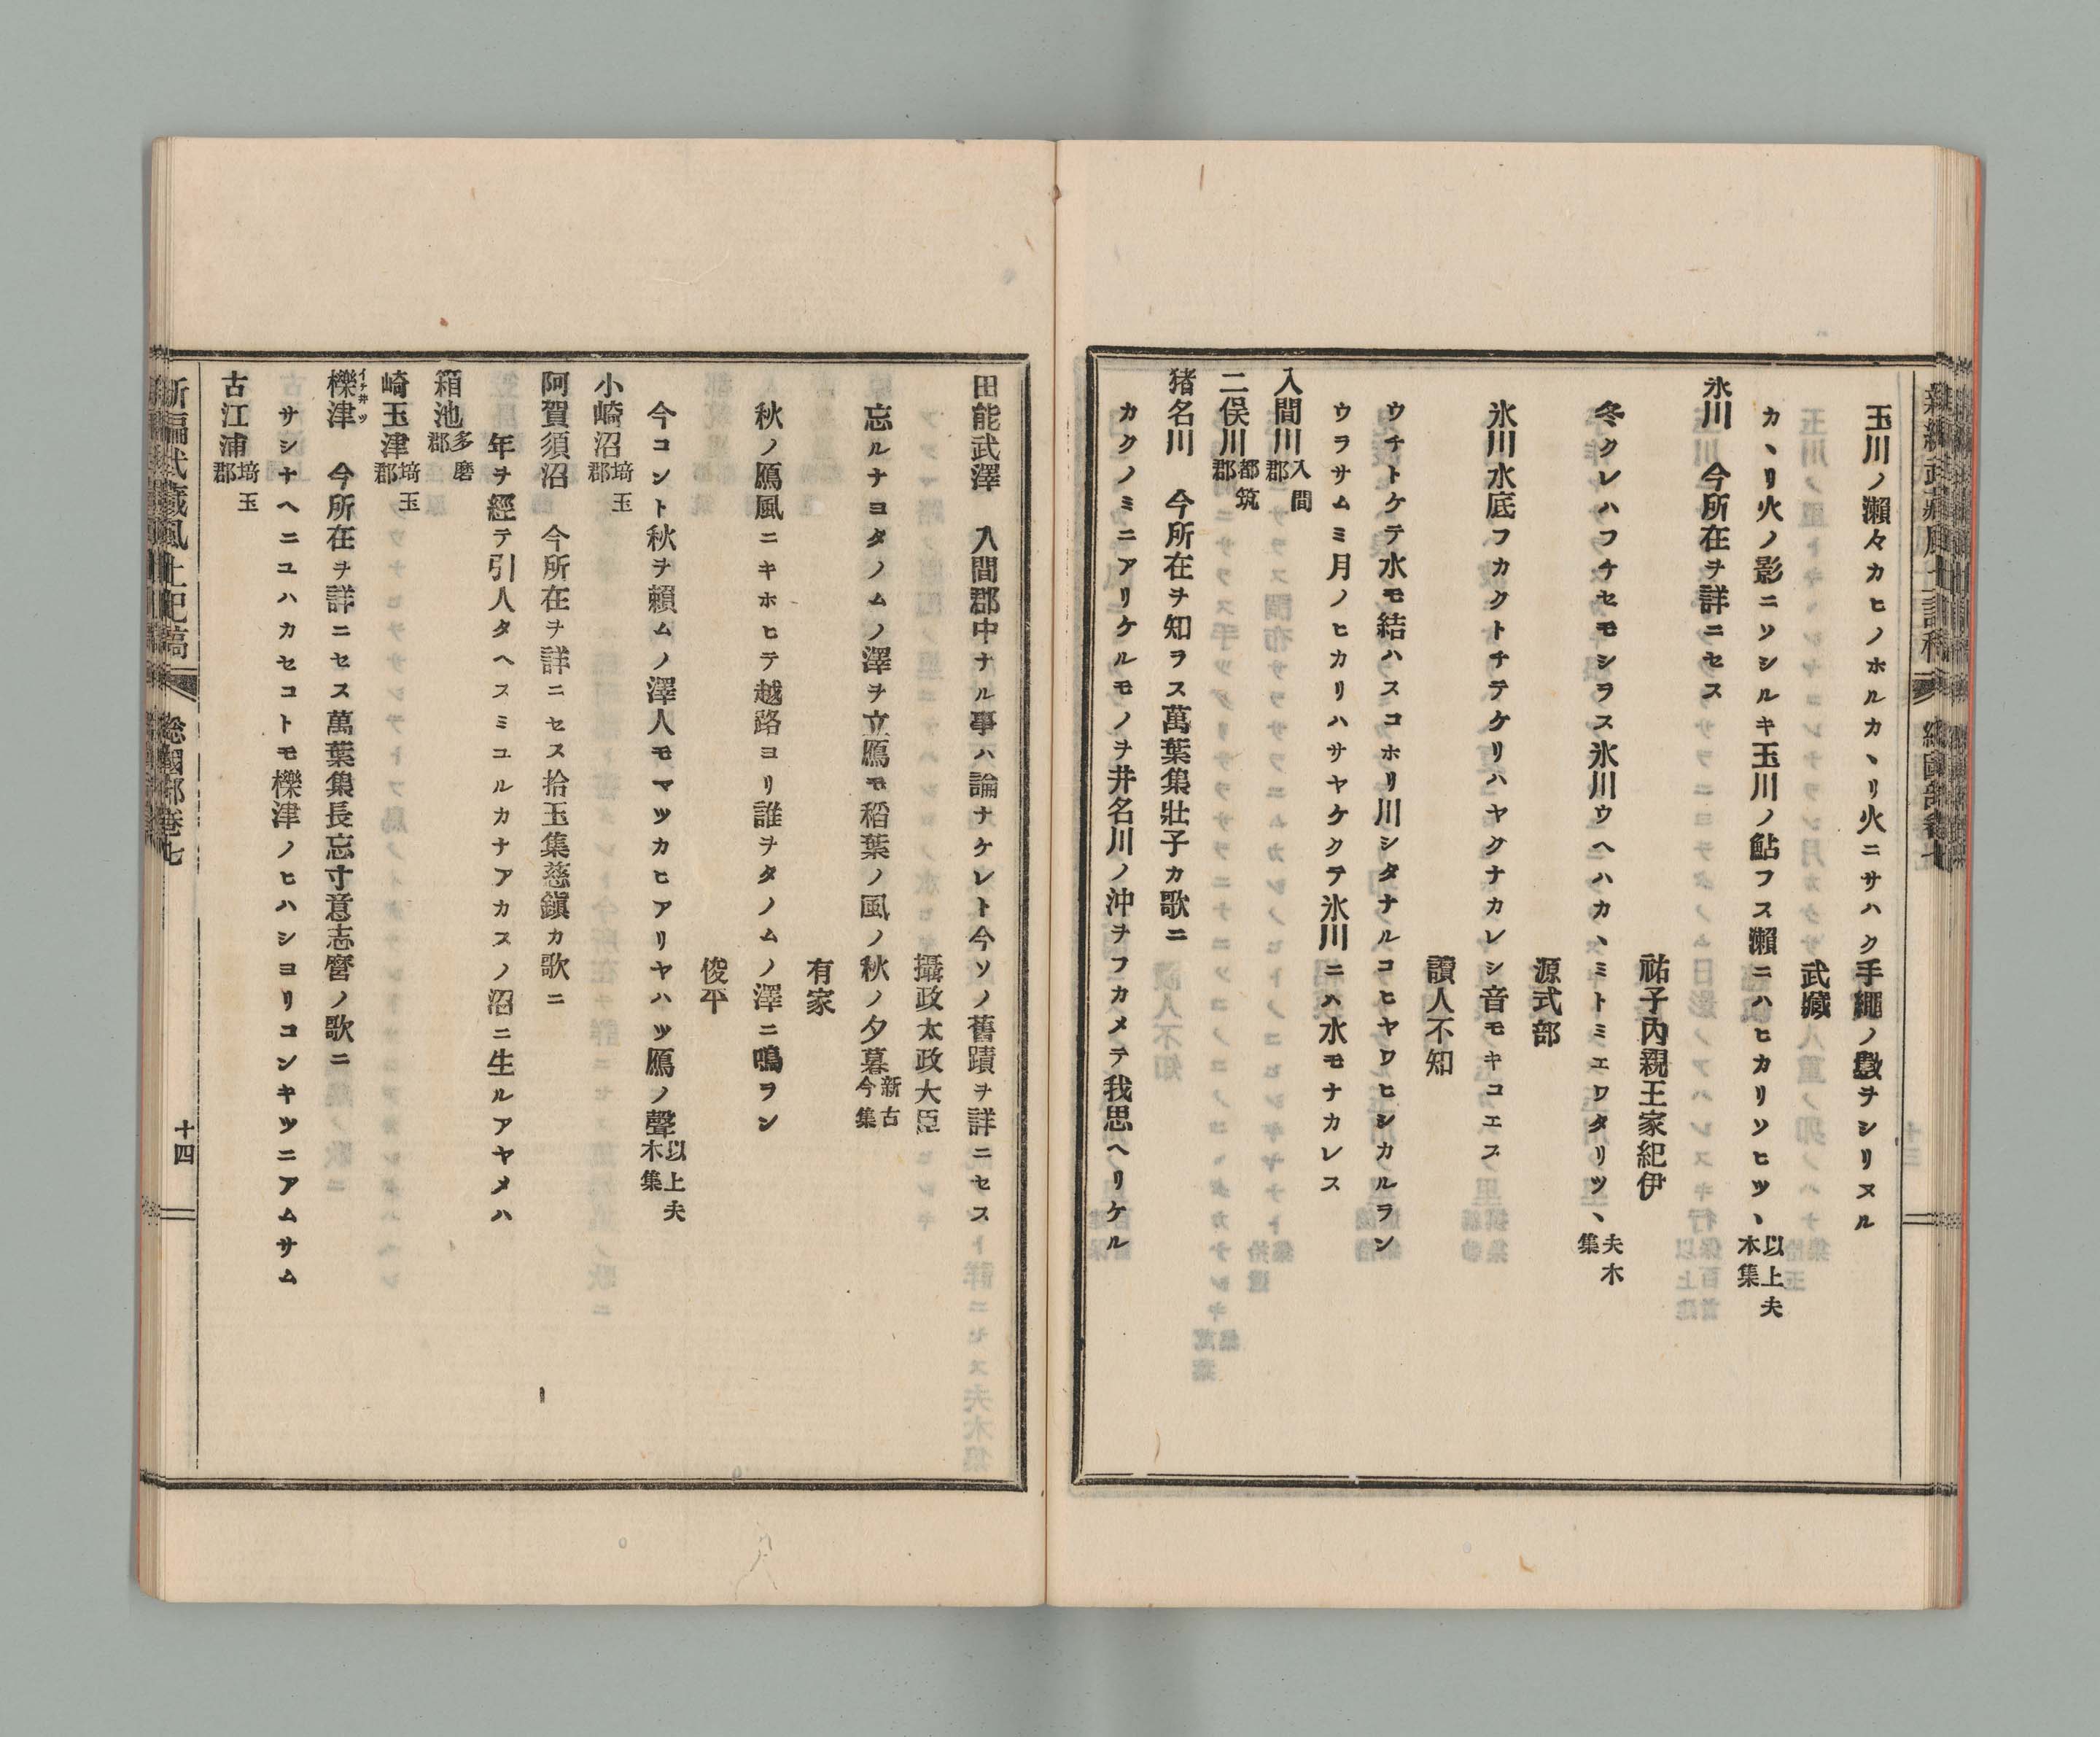 玉川ノ瀬々カヒノホルカヽリ火ニサハク手繩ノ數ヲシリヌル
武藏
カヽリ火ノ影ニソシルキ玉川ノ鮎フス瀬ニハヒカリソヒツヽ以上夫木集
氷川　今所在ヲ詳ニセス
祐子内親王家紀伊
冬クレハフチセモシラス氷川ウヘハカヽミトミエワタリツヽ夫木集
源式部
氷川水底フカクトチテケリハヤクナカレシ音モキコエス
讀人不知
ウチトケテ水モ結ハスコホリ川シタナルコヒヤワヒシカルラン
ウラサムミ月ノヒカリハサヤケクテ氷川ニハ水モナカレス
入間川入間郡
二俣川都筑郡
猪名川　今所在ヲ知ラス萬葉集壯子カ歌ニ
カクノミニアリケルモノヲ井名川ノ沖ヲフカメテ我思ヘリケル
田能武澤　入間郡中ナル事ハ論ナケレト今ソノ舊蹟ヲ詳ニセス
攝政太政大臣
忘ルナヨタノムノ澤ヲ立鴈モ稻葉ノ風ノ秋ノ夕暮新古今集
有家
秋ノ鴈風ニキホヒテ越路ヨリ誰ヲタノムノ澤ニ鳴ヲン
俊平
今コント秋ヲ頼ムノ澤人モマツカヒアリヤハツ鴈ノ聲以上夫木集
小崎沼埼玉郡
阿賀須沼　今所在ヲ詳ニセス拾玉集慈鎭カ歌ニ
年ヲ經テ引人タヘスミユルカナアカスノ沼ニ生ルアヤメハ
箱池多磨郡
崎玉津埼玉郡
櫟津イチ井ツ　今所在ヲ詳ニセス萬葉集長忘寸意志麿ノ歌ニ
サシナヘニユハカセコトモ櫟津ノヒハシヨリコンキツニアムサム
古江浦埼玉郡
新編武藏風土記稿　總國部卷七　十四